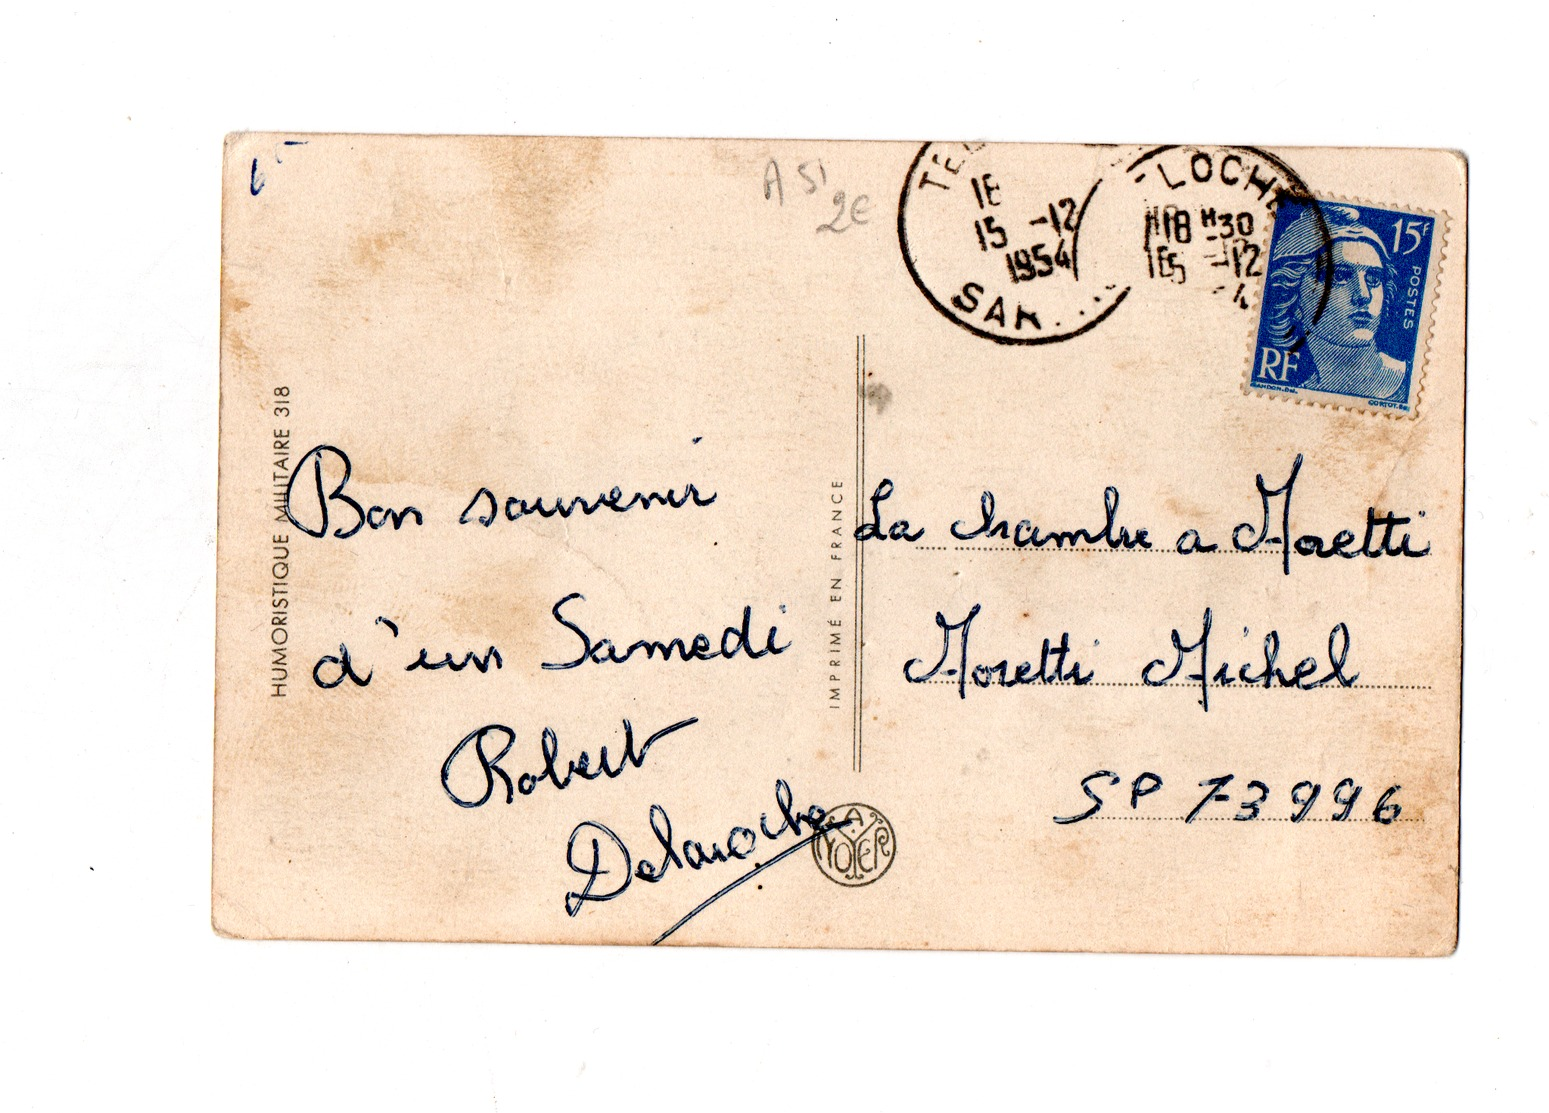 A 51
2€
18
15 -12
1954
SAR
LOCHE
18 H30
15 -12
15F
POSTES
RF
GANDON.Del.
CORTOT.Sc.
HUMORISTIQUE MILITAIRE 318
Bon souvenir
d'un Samedi
Robert
Delaroche
IMPRIMÉ EN FRANCE
La chambre a Moretti
Moretti Michel
SP 73996
A
NOYER